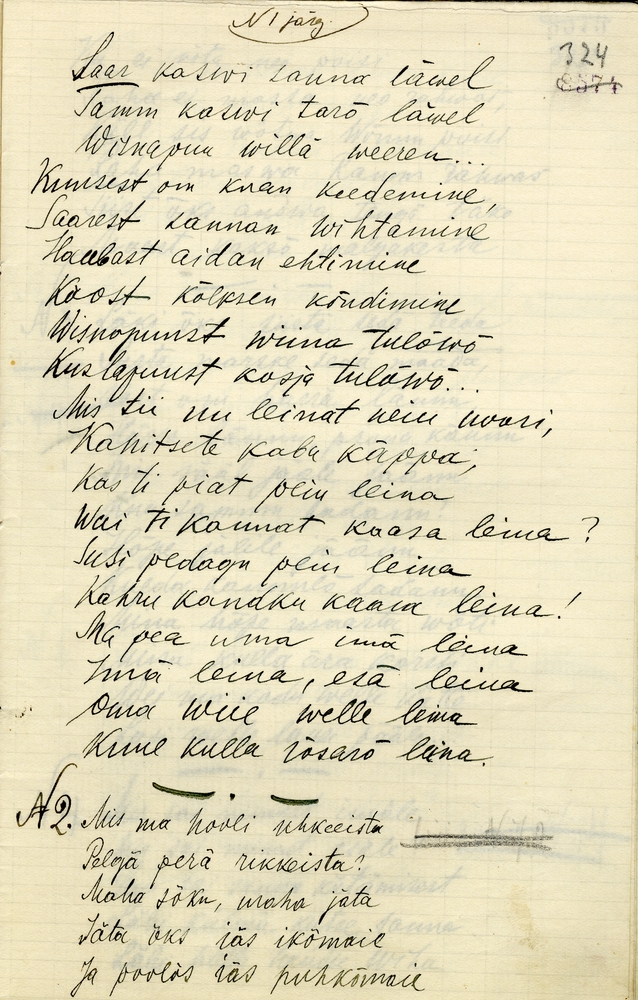 N 1 järg.
324
8574
Saar kaswi sanna läwel
Tamm kaswi tarõ läwel
Wisnapuu willä weeren...
Kuusest om kuan keedemine,
Saarest sannan wihtamine
Haabast aidan ehtimine
Kõost kõlksen kõndimine
Wisnapuust wiina tulõwõ
Kuslapuust kosja tulõwõ...
Mis tii nu leinat neiu noori,
Kahitsete kabu käppa,
Kas ti piat peiu leina
Wai ti kannat kaasa leina?
Susi pedagu peiu leina
Kahru kandku kaasa leina!
Ma pea uma imä leina
Imä leina, esä leina
Oma wiie welle leina
Kuue kulla sõsarõ leina.
N 2. Mis ma hooli uhkeeista
Pelgä perä rikkeista?
Maha sõku, maha jäta
Jäta üks iäs ikõmaie
Ja poolõs iäs puhkõmaie